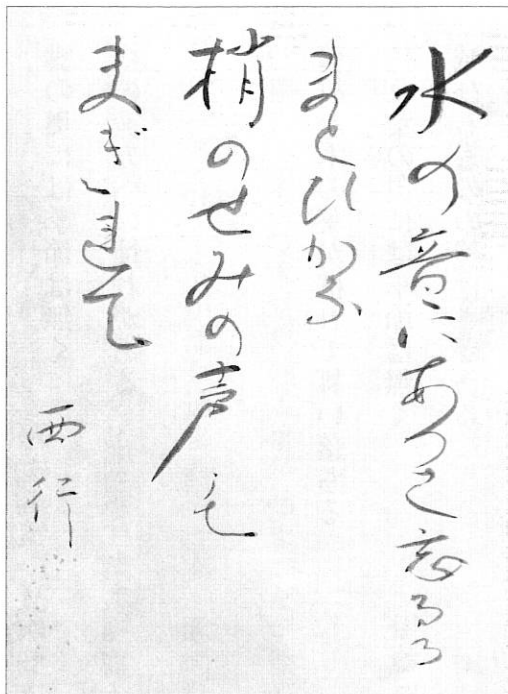 水の音にあつさ忘るる
まとひかな
梢のせみの声も
まぎれて
西行